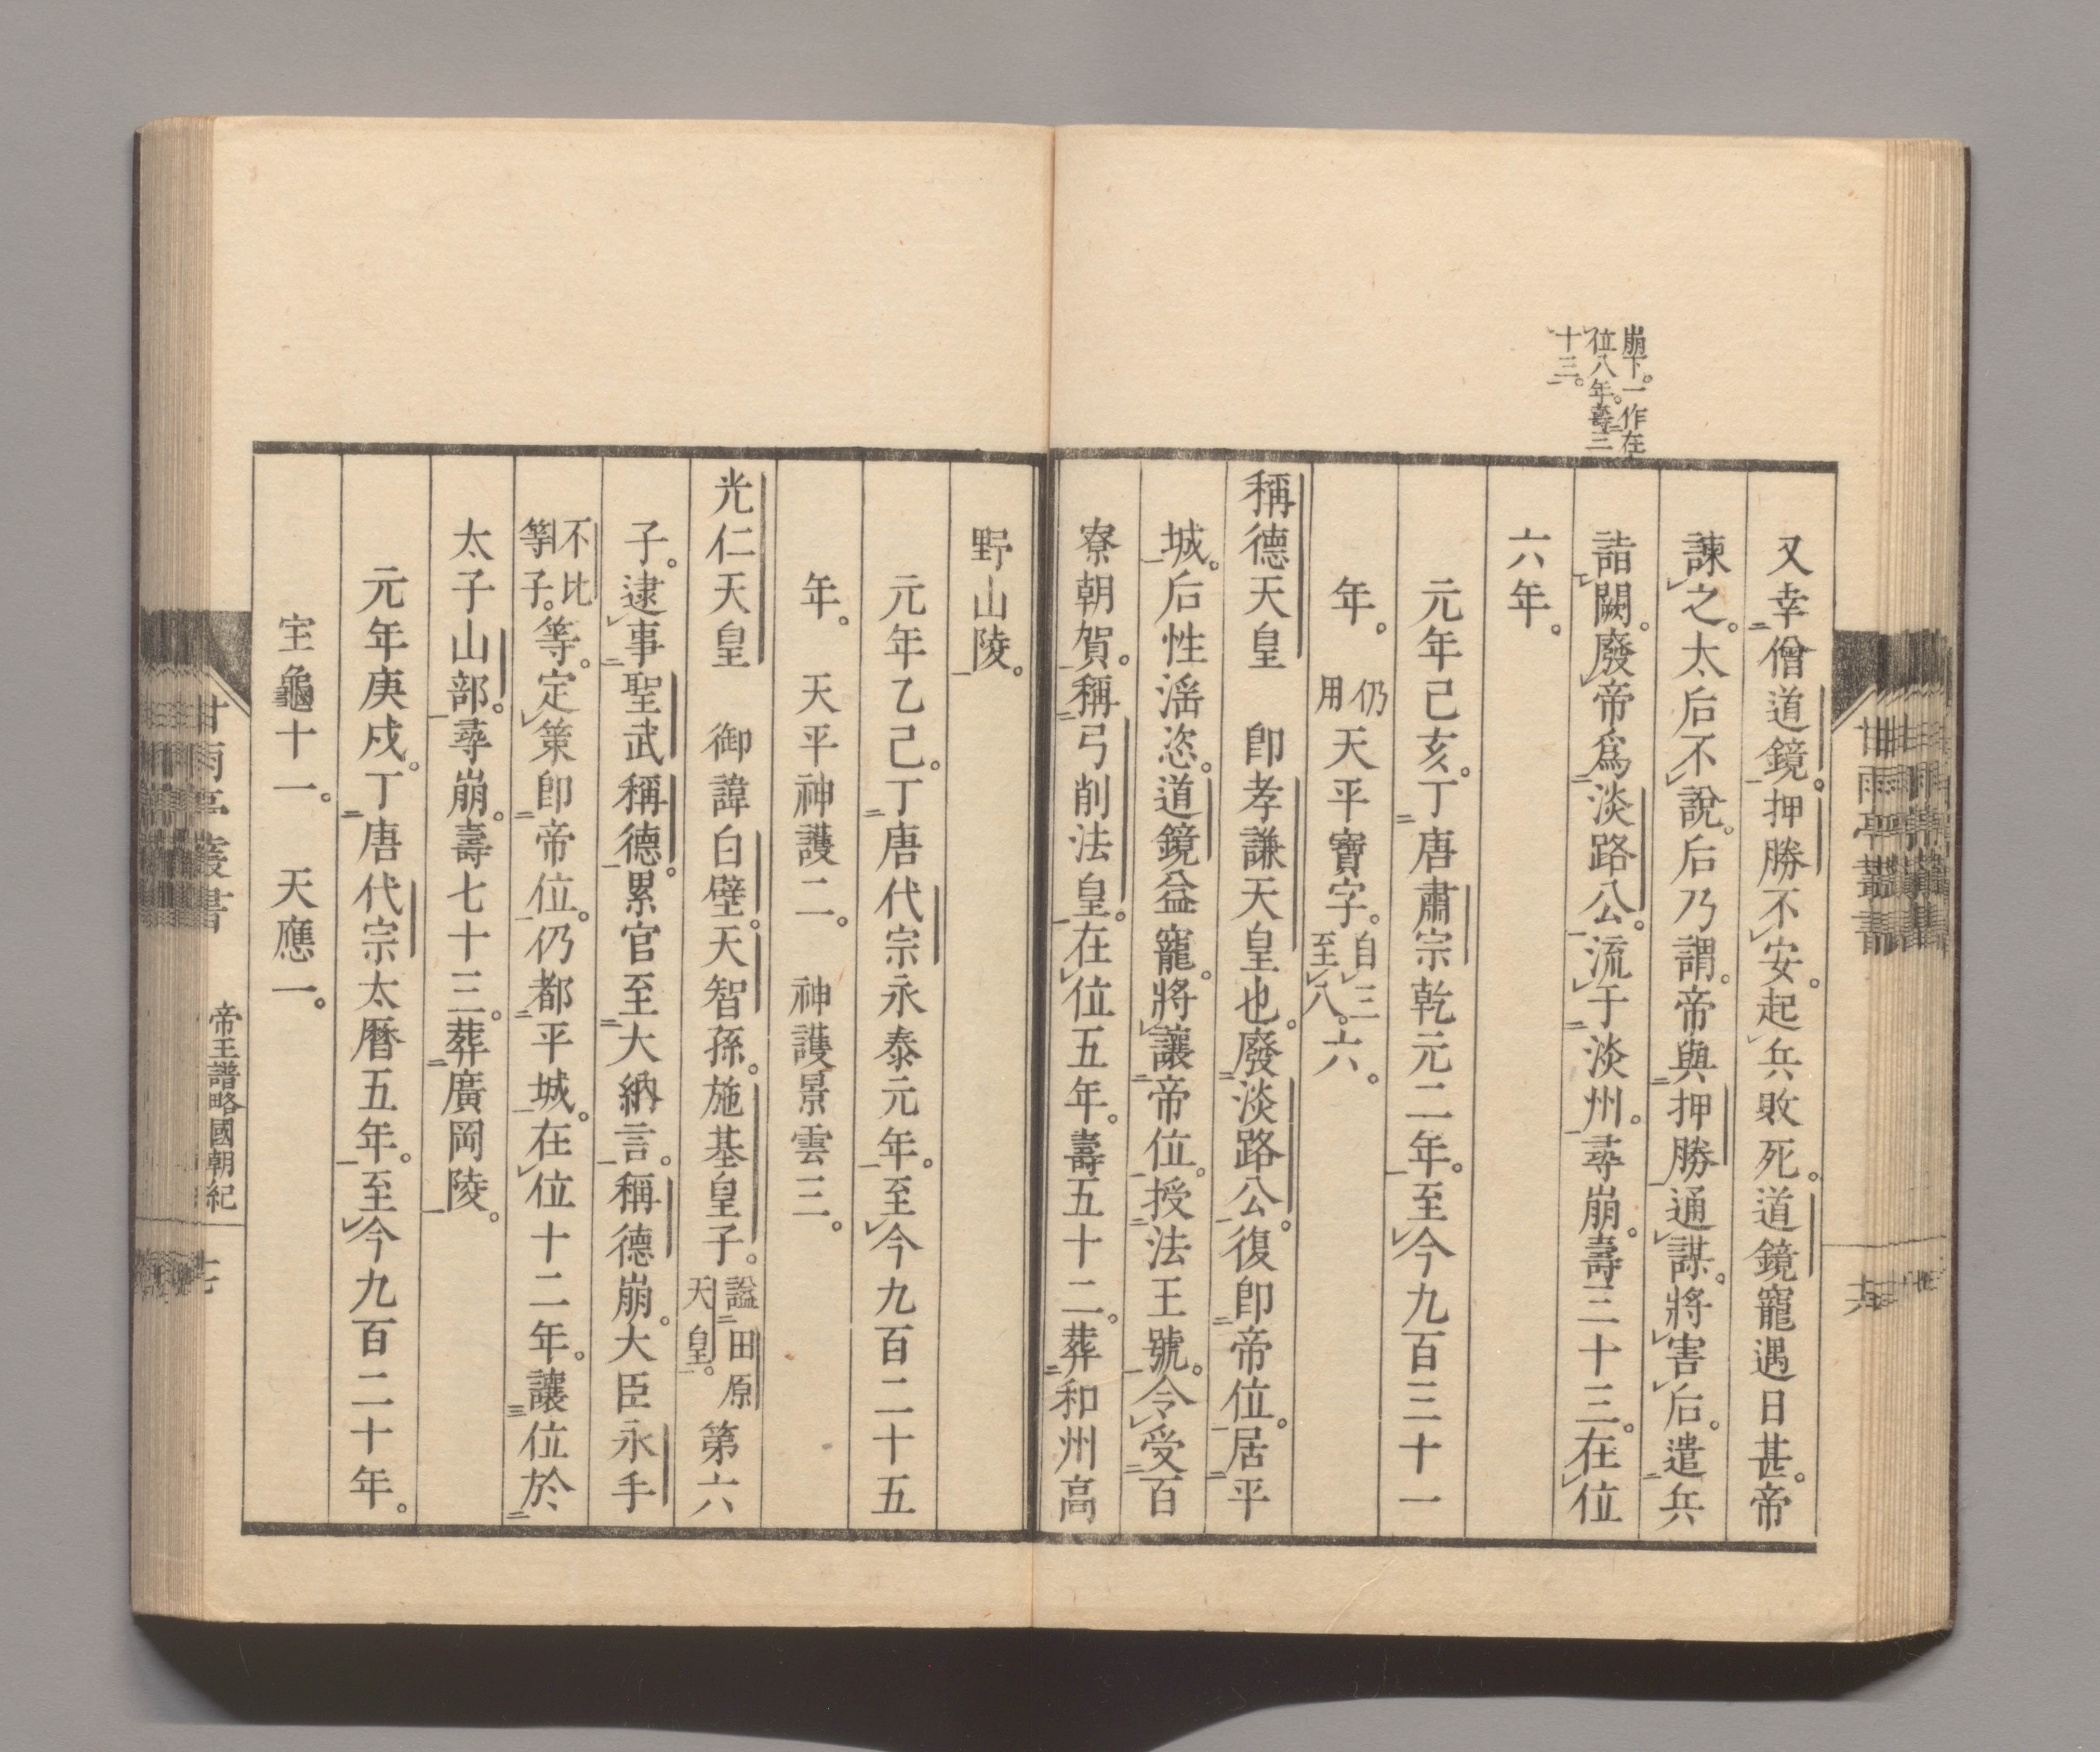 崩下。一作在
位八年。壽三
十三。
又幸僧道鏡。押勝不安。起兵敗死。道鏡寵遇日甚。帝
諫之。太后不說。后乃謂。帝與押勝通謀。將害后。遣兵
詣闕。廢帝爲淡路公。流于淡州。尋崩。壽三十三。在位
六年。
元年己亥。丁唐肅宗乾元二年。至今九百三十一
年。仍用天平寶字。自三至八。六。
稱德天皇 卽孝謙天皇也。廢淡路公。復卽帝位。居平
城。后性滛恣。道鏡益寵。將讓帝位。授法王號。令受百
寮朝賀。稱弓削法皇。在位五年。壽五十二。葬和州高
野山陵。
元年乙巳。丁唐代宗永泰元年。至今九百二十五
年。 天平神護二。 神護景雲三。
光仁天皇 御諱白壁。天智孫。施基皇子。謚田原天皇。第六
子。逮事聖武稱德。累官至大納言。稱德崩。大臣永手
不比等子。等。定策卽帝位。仍都平城。在位十二年。讓位於
太子山部。尋崩。壽七十三。葬廣岡陵。
元年庚戍。丁唐代宗太曆五年。至今九百二十年。
宝龜十一。 天應一。
甘雨亭叢書
帝王譜略國朝紀